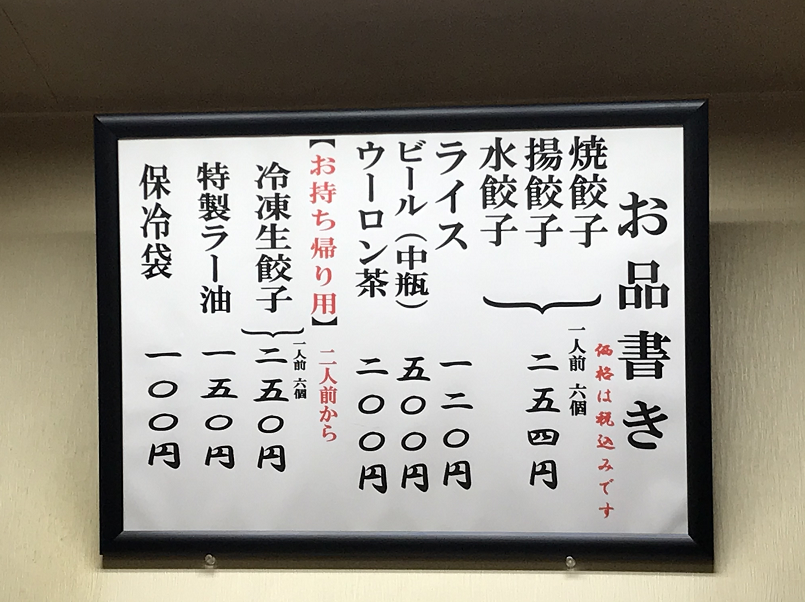 お品書き
価格は税込みです
焼餃子
揚餃子
水餃子
一人前 六個
二五四円
ライス 一二〇円
ビール（中瓶） 五〇〇円
ウーロン茶 二〇〇円
【お持ち帰り用】 二人前から
冷凍生餃子
一人前 六個
二五〇円
特製ラー油 一五〇円
保冷袋 一〇〇円